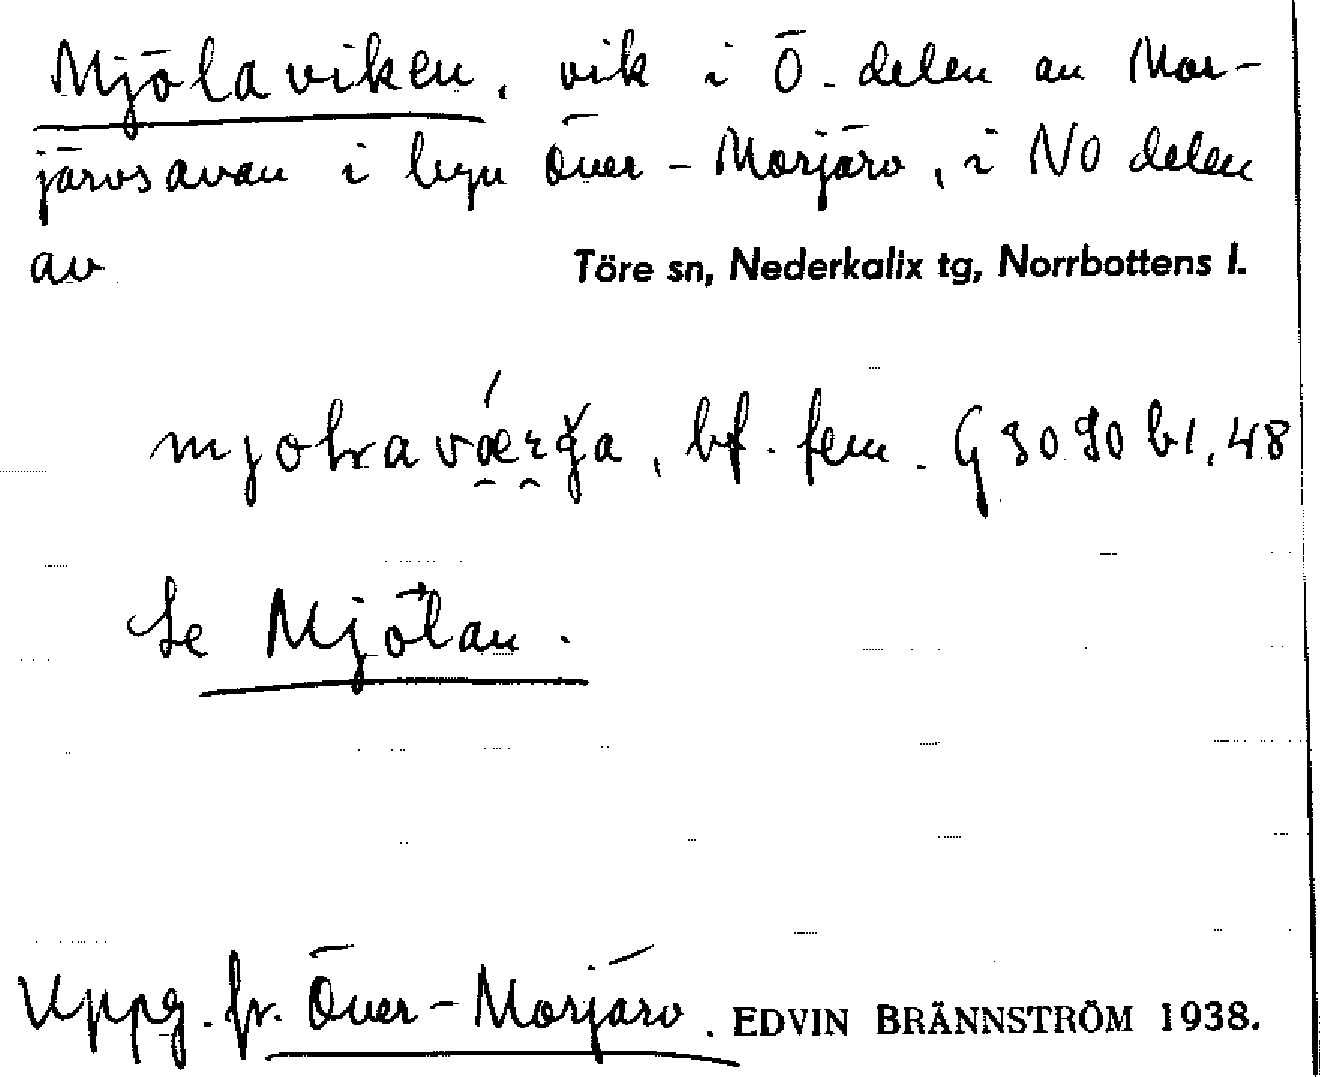 Mjölaviken, vik i Ö. delen av Mor-
järvsavan i byn Över-Morjärv, i NO delen
av Töre sn, Nederkalix tg, Norrbottens l.
bf. fem. G 3090 bl. 48
Se Mjölan.
Uppg. fr. Över-Morjärv. EDVIN BRÄNNSTRÖM 1938.